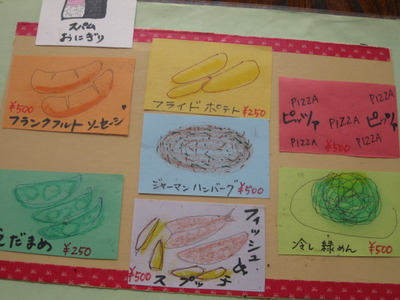 スパム
おにぎり
¥500
フランクフルト ソーセージ
フライド ポテト ¥250
PIZZA PIZZA
ピッツァ PIZZA ピッツァ
PIZZA ¥500 PIZZA
ジャーマン ハンバーグ ¥500
えだまめ ¥250
フィッシュ
&
¥500
冷し緑めん ¥500